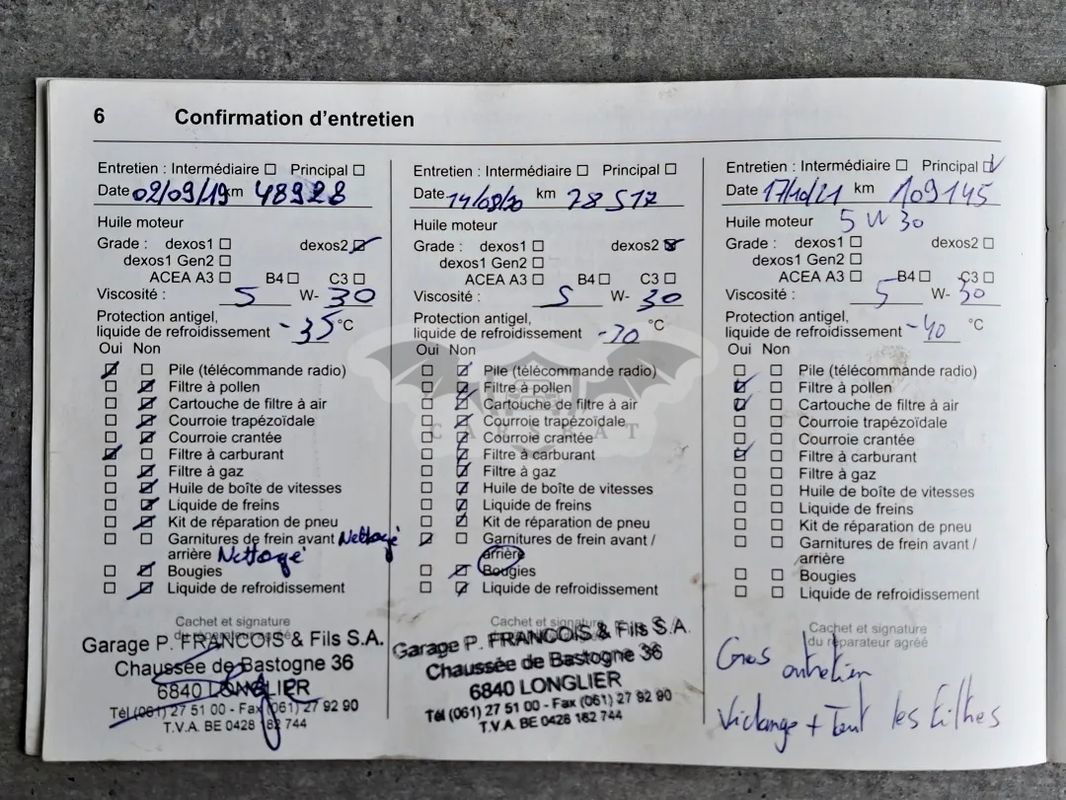 6 Confirmation d'entretien
Entretien : Intermédiaire Principal
Date 02/09/19 km 48928
Huile moteur
Grade : dexos1 dexos2
dexos1 Gen2
ACEA A3 B4 C3
Viscosité : 5 W- 30
Protection antigel,
liquide de refroidissement -35 °C
Oui Non
Pile (télécommande radio)
Filtre à pollen
Cartouche de filtre à air
Courroie trapézoïdale
Courroie crantée
Filtre à carburant
Filtre à gaz
Huile de boîte de vitesses
Liquide de freins
Kit de réparation de pneu
Garnitures de frein avant Nettoyé
arrière Nettoyé
Bougies
Liquide de refroidissement
Cachet et signature
du réparateur agréé
Garage P. FRANCOIS & Fils S.A.
Chaussée de Bastogne 36
6840 LONGLIER
Tél (061) 27 51 00 - Fax (061) 27 92 90
T.V.A. BE 0428 162 744
Entretien : Intermédiaire Principal
Date 14/08/20 km 78517
Huile moteur
Grade : dexos1 dexos2
dexos1 Gen2
ACEA A3 B4 C3
Viscosité : 5 W- 30
Protection antigel,
liquide de refroidissement °C
Oui Non
Pile (télécommande radio)
Filtre à pollen
Cartouche de filtre à air
Courroie trapézoïdale
Courroie crantée
Filtre à carburant
Filtre à gaz
Huile de boîte de vitesses
Liquide de freins
Kit de réparation de pneu
Garnitures de frein avant /
arrière
Bougies
Liquide de refroidissement
Cachet et signature
Garage P. FRANCOIS & Fils S.A.
Chaussée de Bastogne 36
6840 LONGLIER
Tél (061) 27 51 00 - Fax (061) 27 92 90
T.V.A. BE 0428 162 744
Entretien : Intermédiaire Principal
Date 17/10/21 km 109145
Huile moteur 5 W 30
Grade : dexos1 dexos2
dexos1 Gen2
ACEA A3 B4 C3
Viscosité : 5 W- 30
Protection antigel,
liquide de refroidissement -40 °C
Oui Non
Pile (télécommande radio)
Filtre à pollen
Cartouche de filtre à air
Courroie trapézoïdale
Courroie crantée
Filtre à carburant
Filtre à gaz
Huile de boîte de vitesses
Liquide de freins
Kit de réparation de pneu
Garnitures de frein avant /
arrière
Bougies
Liquide de refroidissement
Cachet et signature
du réparateur agréé
Gros entretien
Vidange + Tout les filtres
CARSBAT